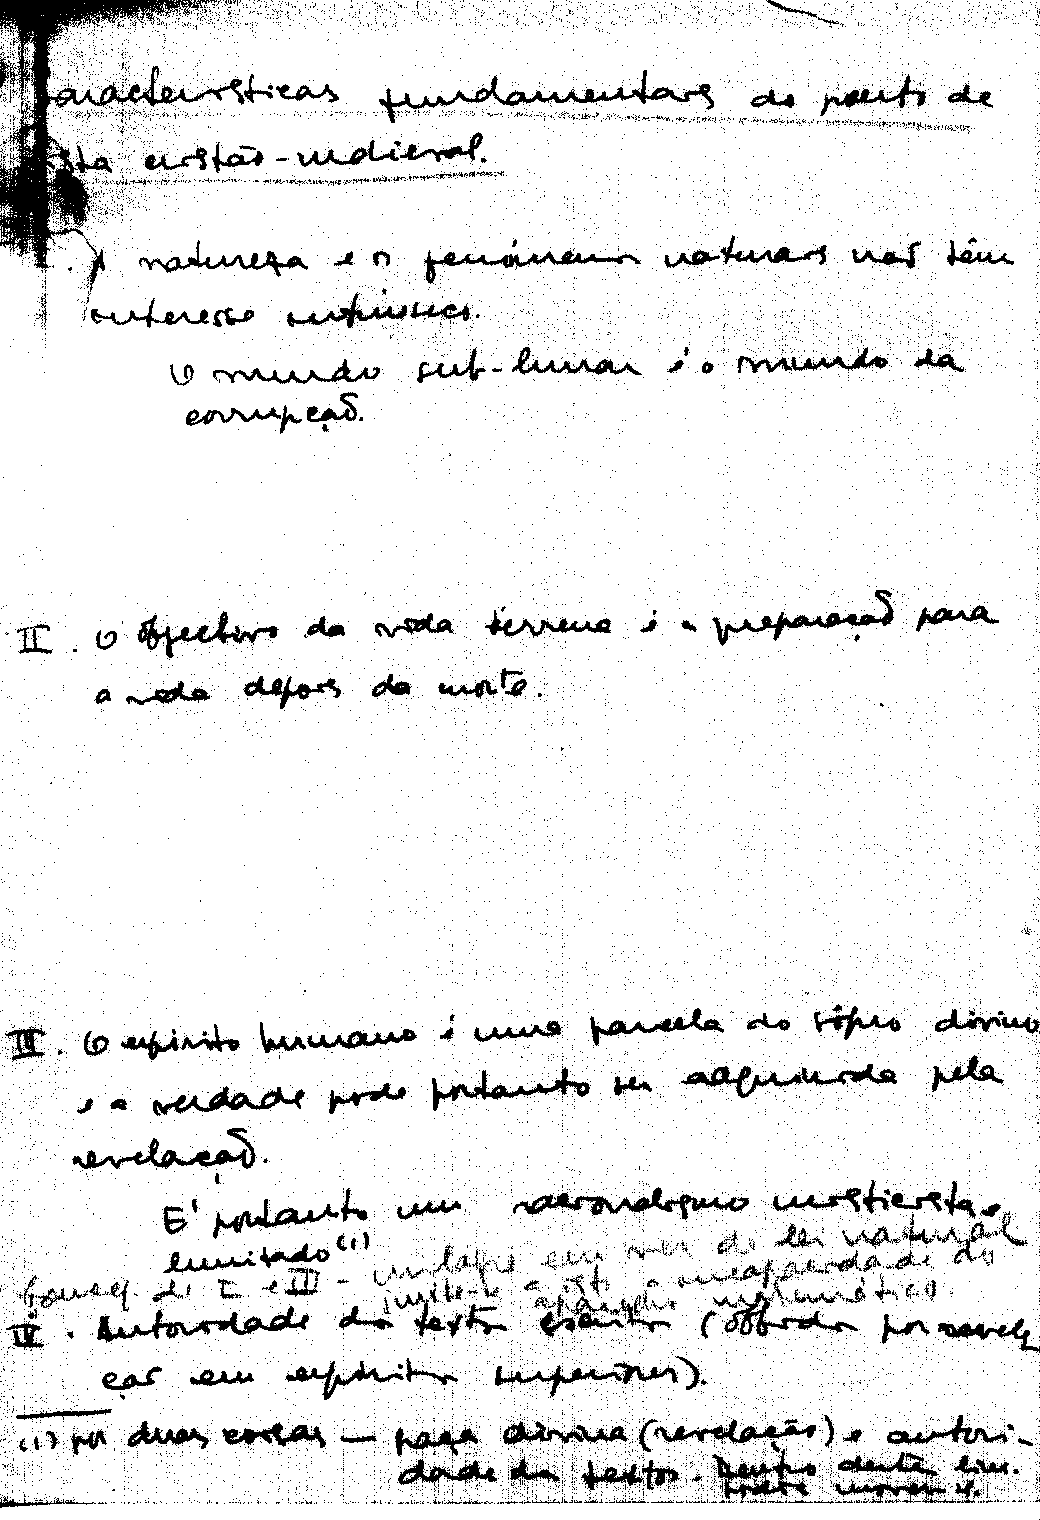 aracterísticas fundamentais do ponto de
sta cristão-medieval.
. A natureza e os fenómenos naturais não têm
interesse intrínseco.
O mundo sub-lunar é o mundo da
corrupção.
II. O objectivo da vida terrena é a preparação para
a vida depois da morte.
III. O espírito humano é uma parcela do sôpro divino
e a verdade pode portanto ser adquirida pela
revelação.
É portanto um racionalismo misticista e
limitado (1)
Conseq. de I e III - milagre em vez de lei natural
junte-se a isto a incapacidade do
aparelho matemático.
IV. Autoridade dos textos escritos (obtidos por revela
ção em espíritos superiores).
(1) por duas coisas — graça divina (revelação) e autori-
dade dos textos. Dentro destes lim.
pode mover-se.